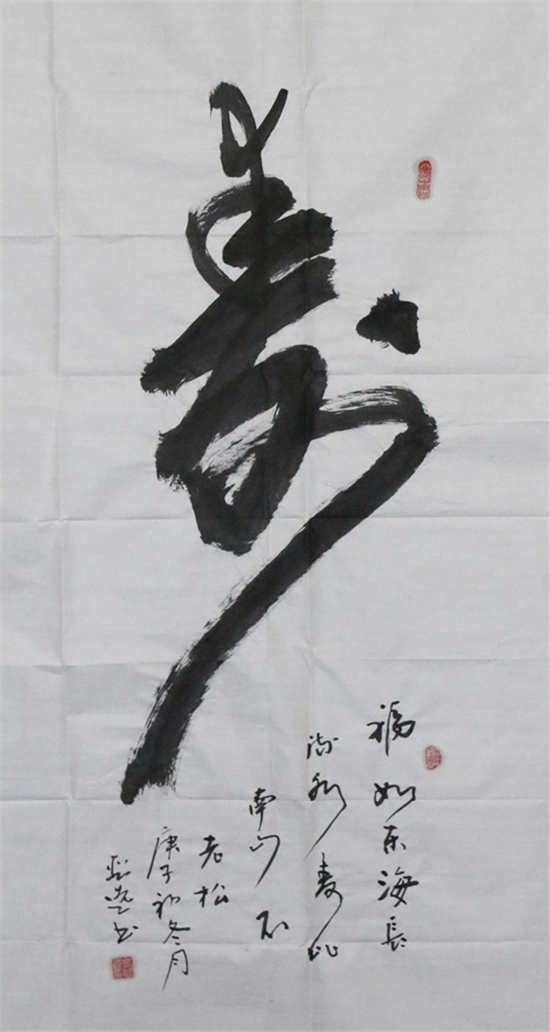 寿
福如东海长
流水寿比
南山不
老松
庚子初冬月
书